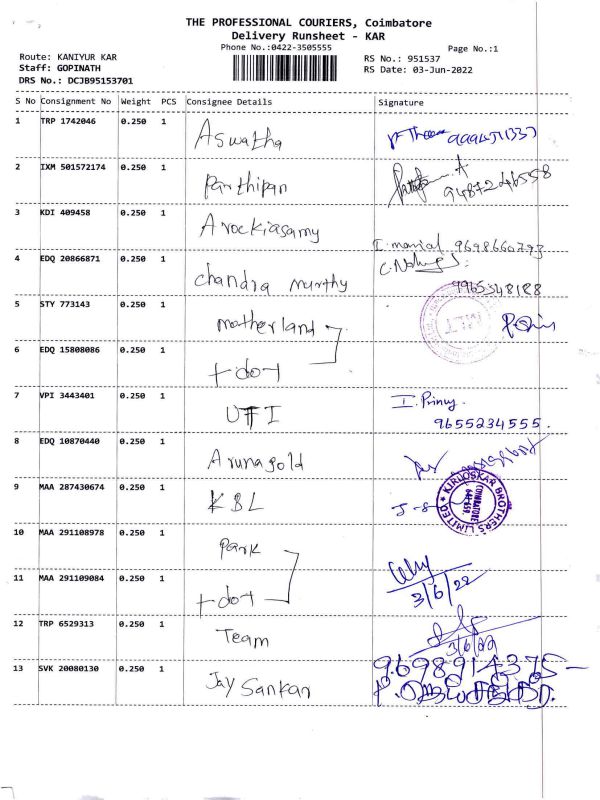 THE PROFESSIONAL COURIERS, Coimbatore
Delivery Runsheet - KAR
Phone No.:0422-3505555
Page No.:1
Route: KANIYUR KAR
Staff: GOPINATH
DRS No.: DCJB95153701
RS No.: 951537
RS Date: 03-Jun-2022
S No Consignment No Weight PCS Consignee Details Signature
1 TRP 1742046 0.250 1 Aswatha
2 IXM 501572174 0.250 1 Parthipan 9487246558
3 KDI 409458 0.250 1 Arockiasamy 9698660793
4 EDQ 20866871 0.250 1 chandra murthy 9965548188
5 STY 773143 0.250 1 motherland
6 EDQ 15808086 0.250 1 +do+
7 VPI 3443401 0.250 1 UTI I. Priny. 9655234555.
8 EDQ 10870440 0.250 1 Arunagold
9 MAA 287430674 0.250 1 KBL KIRLOSKAR BROTHERS LIMITED. COIMBATORE 641 659.
10 MAA 291108978 0.250 1 park
11 MAA 291109084 0.250 1 +do+ 3/6/22
12 TRP 6529313 0.250 1 Team 3/6/22
13 SVK 20080130 0.250 1 Jay Sankar 9698914375